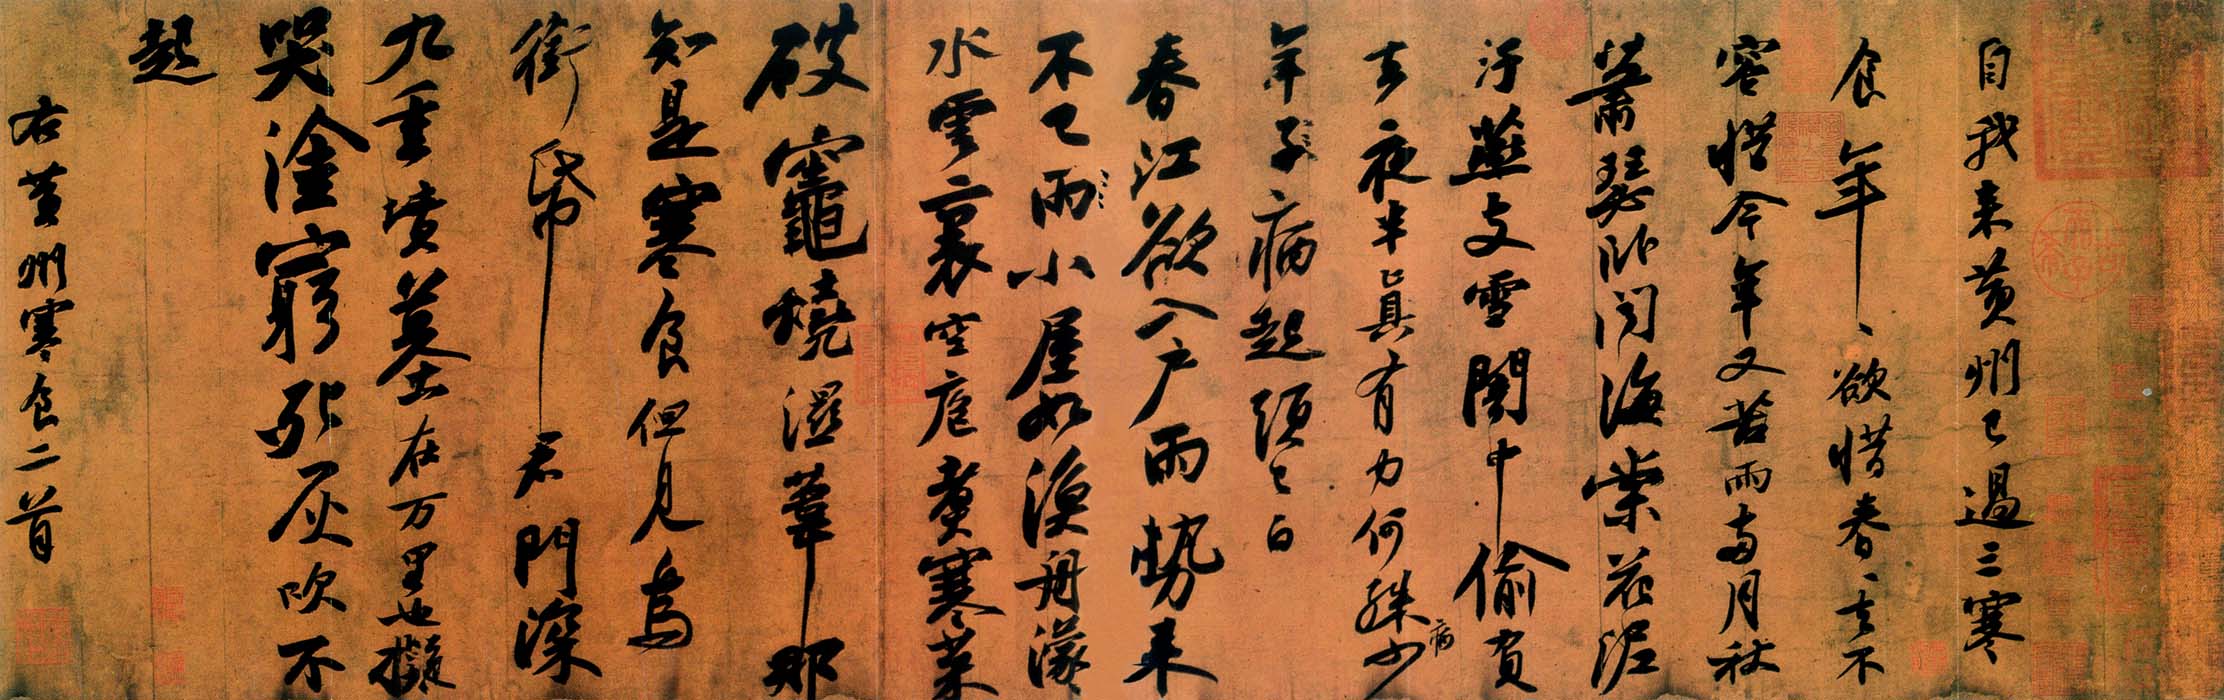 自我来黄州已過三寒
食年〻欲惜春〻去不
容惜今年又苦雨兩月秋
蕭瑟卧聞海棠花泥
汙燕支雪闇中偷負
去夜半真有力何殊少病
年子病起須已白
春江欲入户雨勢来
不已雨小屋如漁舟濛〻
水雲裏空庖煑寒菜
破竈燒濕葦那
知是寒食但見烏
銜帋君門深
九重墳墓在万里也擬
哭塗窮死灰吹不
起
右黄州寒食二首